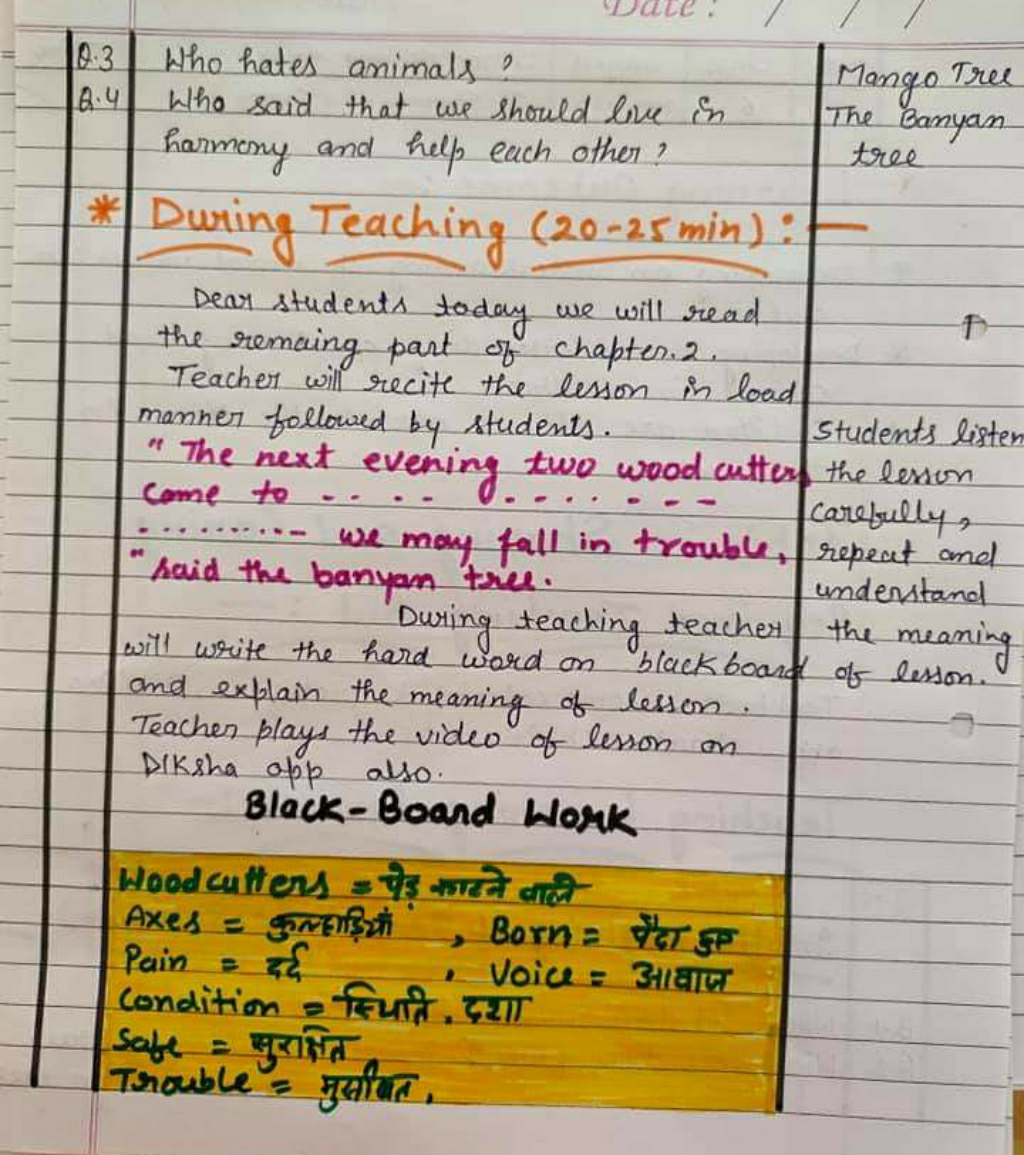 Date : / / /
Q.3 Who hates animals ? Mango Tree
Q.4 Who said that we should live in The Banyan
harmony and help each other ? tree
* During Teaching (20-25 min) : —
Dear students today we will read
the remaing part of chapter.2.
Teacher will recite the lesson in load
manner followed by students. Students listen
" The next evening two wood cutters the lesson
come to - - . . - - . - - . . - - - carefully,
. . . . . . . . . . - - we may fall in trouble, repeat and
" said the banyan tree. understand
During teaching teacher the meaning
will write the hard word on blackboard of lesson.
and explain the meaning of lesson .
Teacher plays the video of lesson on
DIKsha app also.
Black-Board Work
Woodcutters = पेड़ काटने वाले
Axes = कुल्हाड़ियाँ , Born = पैदा हुए
Pain = दर्द , Voice = आवाज
Condition = स्थिति . दशा
Safe = सुरक्षित
Trouble = मुसीबत .